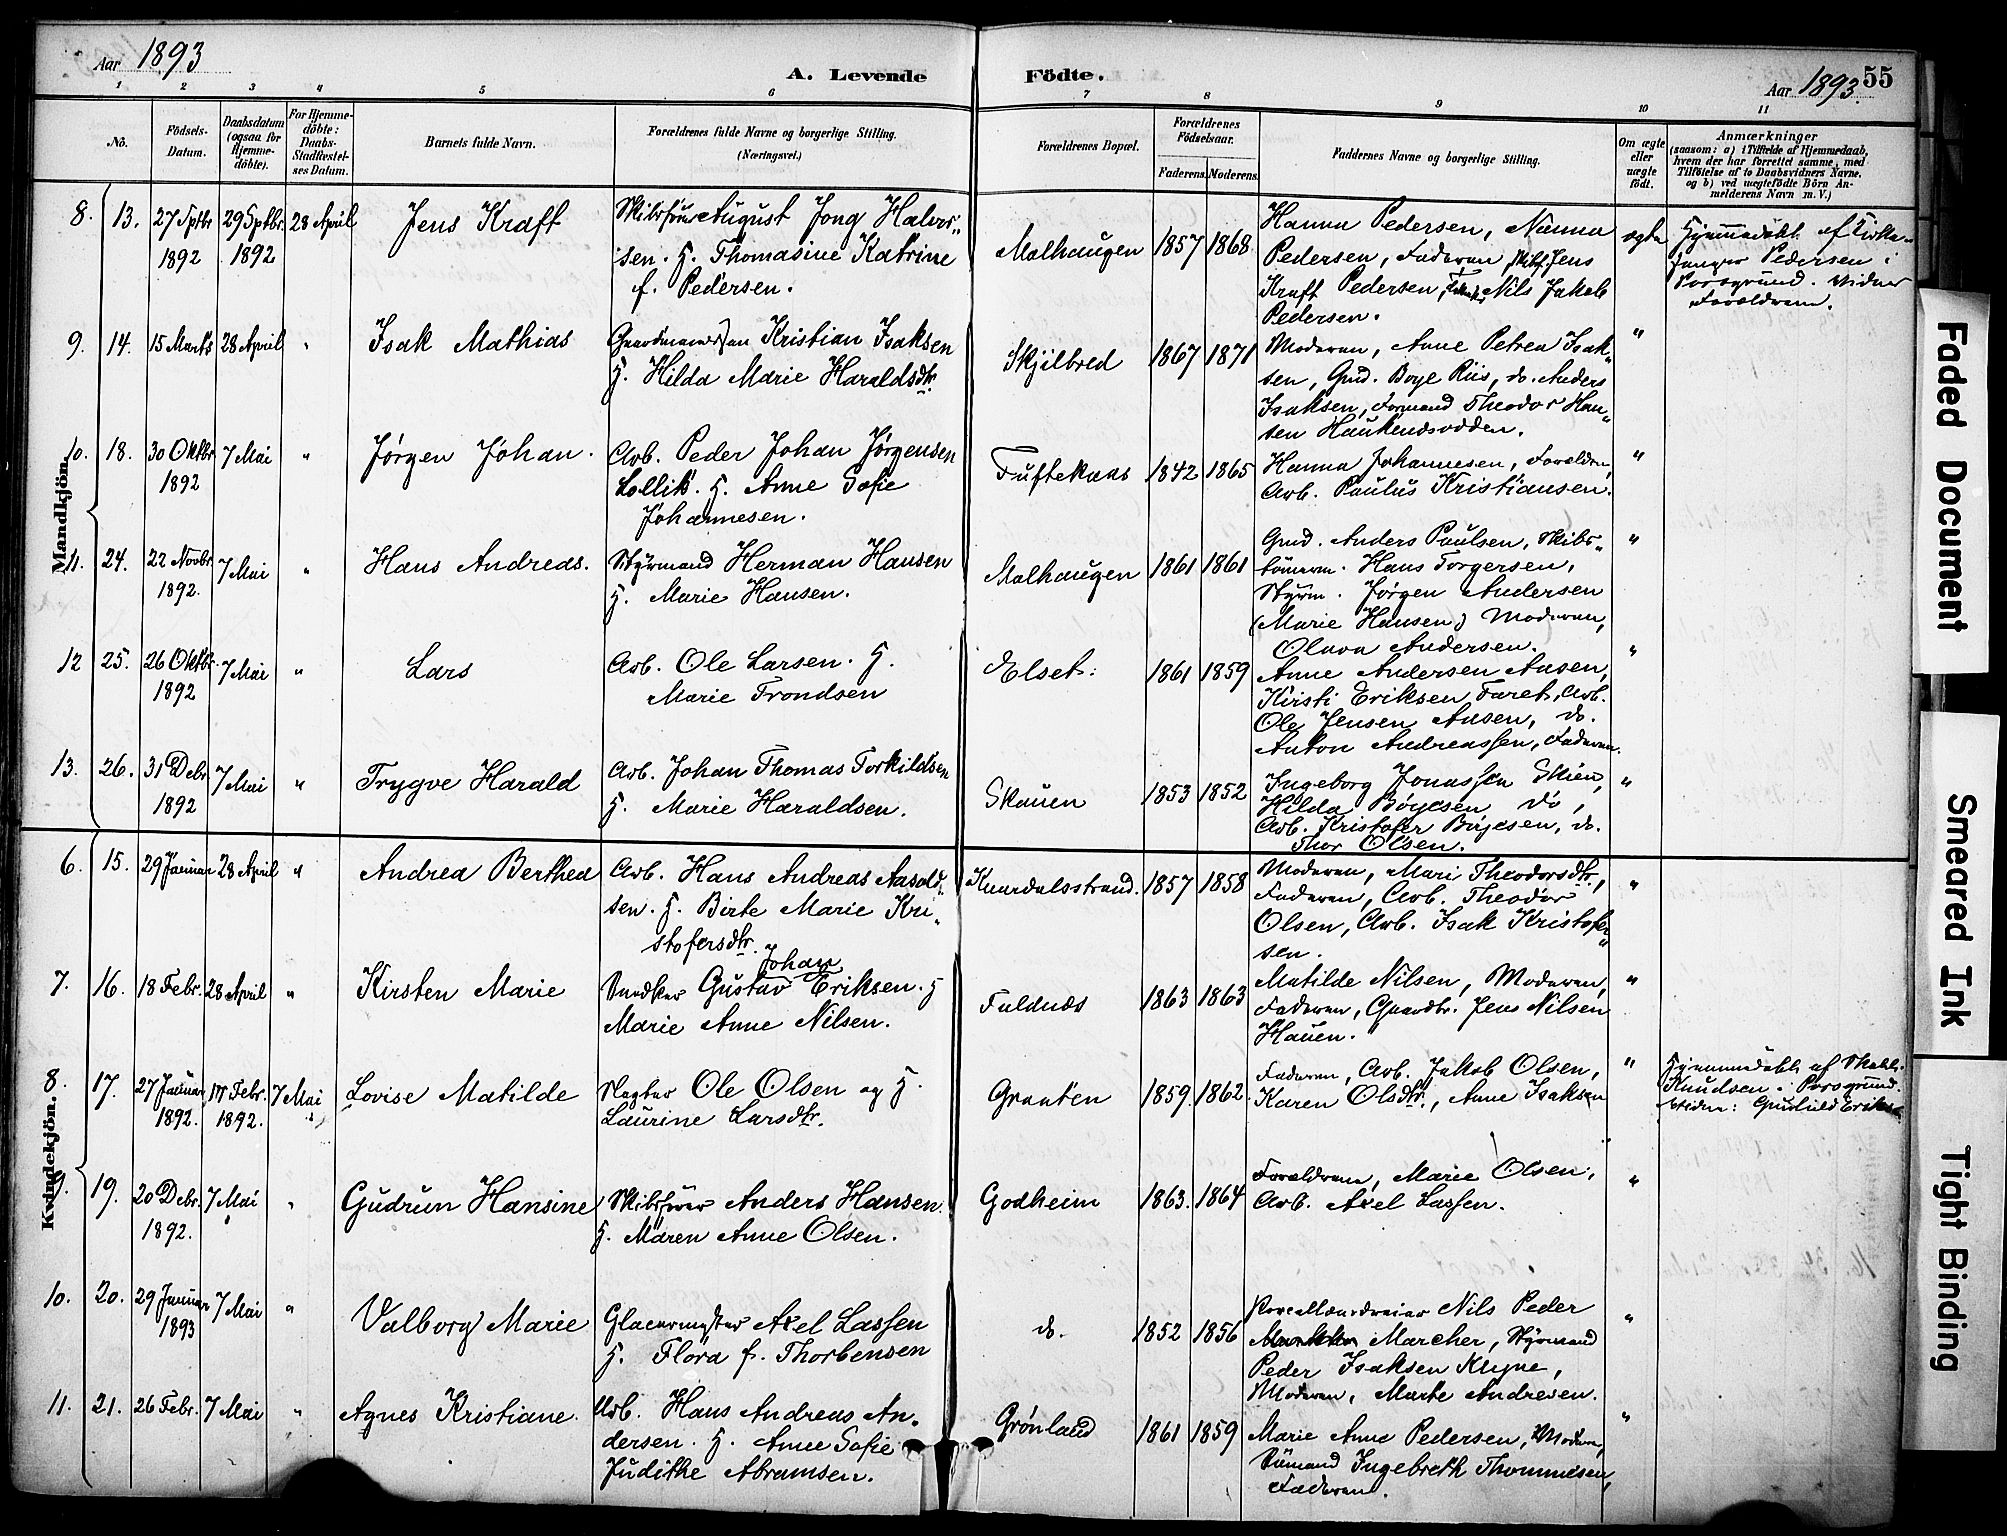 Aar 1893
A. Levende Födte.
Aar 1893. 55
1 2 3 4 5 6 7 8 9 10 11
No.
Födsels-Datum.
Daabsdatum (ogsaa for Hjemme-döbte).
For Hjemme-döbte: Daabs-Stadfæstel-ses Datum.
Barnets fulde Navn.
Forældrenes fulde Navne og borgerlige Stilling.
(Næringsvei.)
Forældrenes Bopæl.
Forældrenes Födselsaar.
Faderens. Moderens.
Faddernes Navne og borgerlige Stilling.
Om ægte eller uægte födt.
Anmærkninger
(saasom: a) i Tilfælde af Hjemmedaab, hvem der har forrettet samme, med Tilföielse af to Daabsvidners Navne, og b) ved uægtefödte Börn An-melderens Navn m. V.)
Mandkjön.
8. 13. 27 Sptbr 1892 29 Sptbr. 1892 28 April Jens Kraft
Skibsfører August Jong Halvor-
sen. H. Thomasine Katrine
f. Pedersen.
Malhaugen 1857 1868
Hanna Pedersen, Nanna
Pedersen, Faderen, Skibsf. Jens
Kraft Pedersen, Nils Jakob
Pedersen.
ægte
Hjemmedøbt af Kirke-
sanger Pedersen i
Porsgrund. Vidner
Forældrene.
9. 14. 15 Marts 28 April " Isak Mathias
Gaardmandssøn Kristian Isaksen
H. Hilda Marie Haraldsdtr.
Skjilbred 1867 1871
Moderen, Anne Petrea Isak-
sen, Gmd. Boye Riis, do. Anders
Isaksen, Formand Theodor Han-
sen Haukenesodden.
"
10. 18. 30 Oktbr 1892 7 Mai " Jørgen Johan.
Arb. Peder Johan Jørgensen
Lollik. H. Anne Sofie
Johannesen.
Tuftekaas 1842 1865
Hanna Johannesen, Foreldrene,
Arb. Paulus Kristiansen.
"
11. 24. 22 Novbr. 1892. 7 Mai " Hans Andreas.
Styrmand Herman Hansen
H. Marie Hansen.
Malhaugen 1861 1861
Gmd. Anders Paulsen, Skibs-
tømrerm. Hans Torgersen,
Styrm. Jørgen Andersen
(Marie Hansen) Moderen,
Olava Andersen.
"
12 25. 26 Oktbr. 1892 7 Mai " Lars
Arb. Ole Larsen. H.
Marie Trondsen
Elset: 1861 1859
Anne Andersen Aasen,
Kirsti Eriksen Faret, Arb.
Ole Jensen Aasen, do.
Anton Andreassen, Faderen.
"
13. 26. 31 Debr. 1892 7 Mai " Trygve Harald
Arb. Johan Thomas Torkildsen
H. Marie Haraldsen.
Skauen 1853 1852
Ingeborg Jonassen Skien,
Hilda Bøyesen do,
Arb. Kristofer Bøyesen, do.
Thor Olsen.
"
Kvindekjön.
6. 15. 29 Januar 28 April " Andrea Berthea
Arb. Hans Andreas Aasold-
sen. H. Birte Marie Kri-
stofersdtr.
Knardalsstrand. 1857 1858
Moderen, Mari Theodorsdtr,
Faderen, Arb. Theodor
Olsen, Arb. Isak Kristofer-
sen.
"
7. 16. 18 Febr. 28 April " Kirsten Marie
Johan
Snedker Gustav Eriksen. H
Marie Anne Nilsen.
Faldnes 1863 1863
Matilde Nilsen, Moderen,
Faderen, Gaardbr. Jens Nilsen
Hauen.
"
8. 17. 27 Januar 1892. 17 Febr. 1892. 7 Mai Lovise Matilde
Slagter Ole Olsen og H.
Laurine Larsdtr.
Graaten 1859. 1862.
Faderen, Arb. Jakob Olsen,
Karen Olsdtr., Anne Isaksen
"
Hjemmedøbt af
Knudsen i Porsgrund.
Vidne: Gunhild Eriksen
9. 19. 20 Debr. 1892. 7 Mai " Gudrun Hansine
Skibsfører Anders Hansen
H. Maren Anne Olsen.
Godheim 1863. 1864
Forældrene, Marie Olsen,
Arb. Axel Lassen.
"
10. 20. 29 Januar 1893 7 Mai " Valborg Marie
Glacermester Axel Lassen
H. Flora f. Thorbensen
do. 1852 1856
Porcellændreier Nils Peder
Marcher, Styrmand
Peder Isaksen Klyve,
Moderen, Marte Andresen.
"
11. 21. 26 Febr. 7 Mai " Agnes Kristiane.
Arb. Hans Andreas An-
dersen. H. Anne Sofie
Judithe Abramsen.
Grønland 1861 1859
Marie Anne Pedersen, Moderen,
Sømand Ingebreth Thommesen,
Faderen.
"
Faded Document
Smeared Ink
Tight Binding